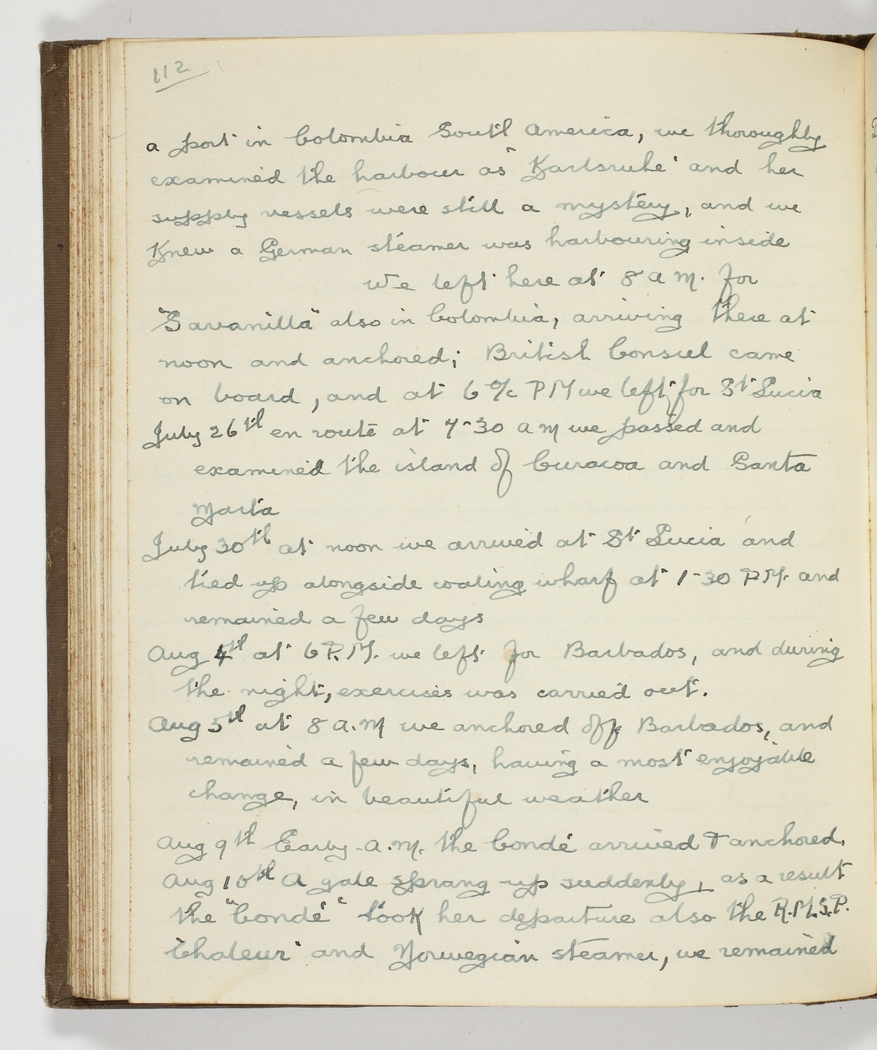 112
a port in Colombia South America, we thoroughly
examined the harbour as "Karlsruhe" and her
supply vessels were still a mystery, and we
Knew a German steamer was harbouring inside
We left here at 8 a M. for
"Savanilla" also in Colombia, arriving there at
noon and anchored; British Consul came
on board, and at 6 o/c PM we left for St Lucia
July 26th en route at 7-30 a m we passed and
examined the island of Curacoa and Santa
Marta
July 30th at noon we arrived at St Lucia and
tied up alongside coaling wharf at 1-30 P.M. and
remained a few days
Aug 4th at 6 P.M. we left for Barbados, and during
the night, exercises was carried out.
Aug 5th at 8 a.m we anchored off Barbados, and
remained a few days, having a most enjoyable
change, in beautiful weather
Aug 9th Early a.m. the Condé arrived & anchored.
Aug 10th A gale sprang up suddenly, as a result
the "Condé" took her departure also the R.M.S.P.
"Chaleur" and Norwegian steamer, we remained